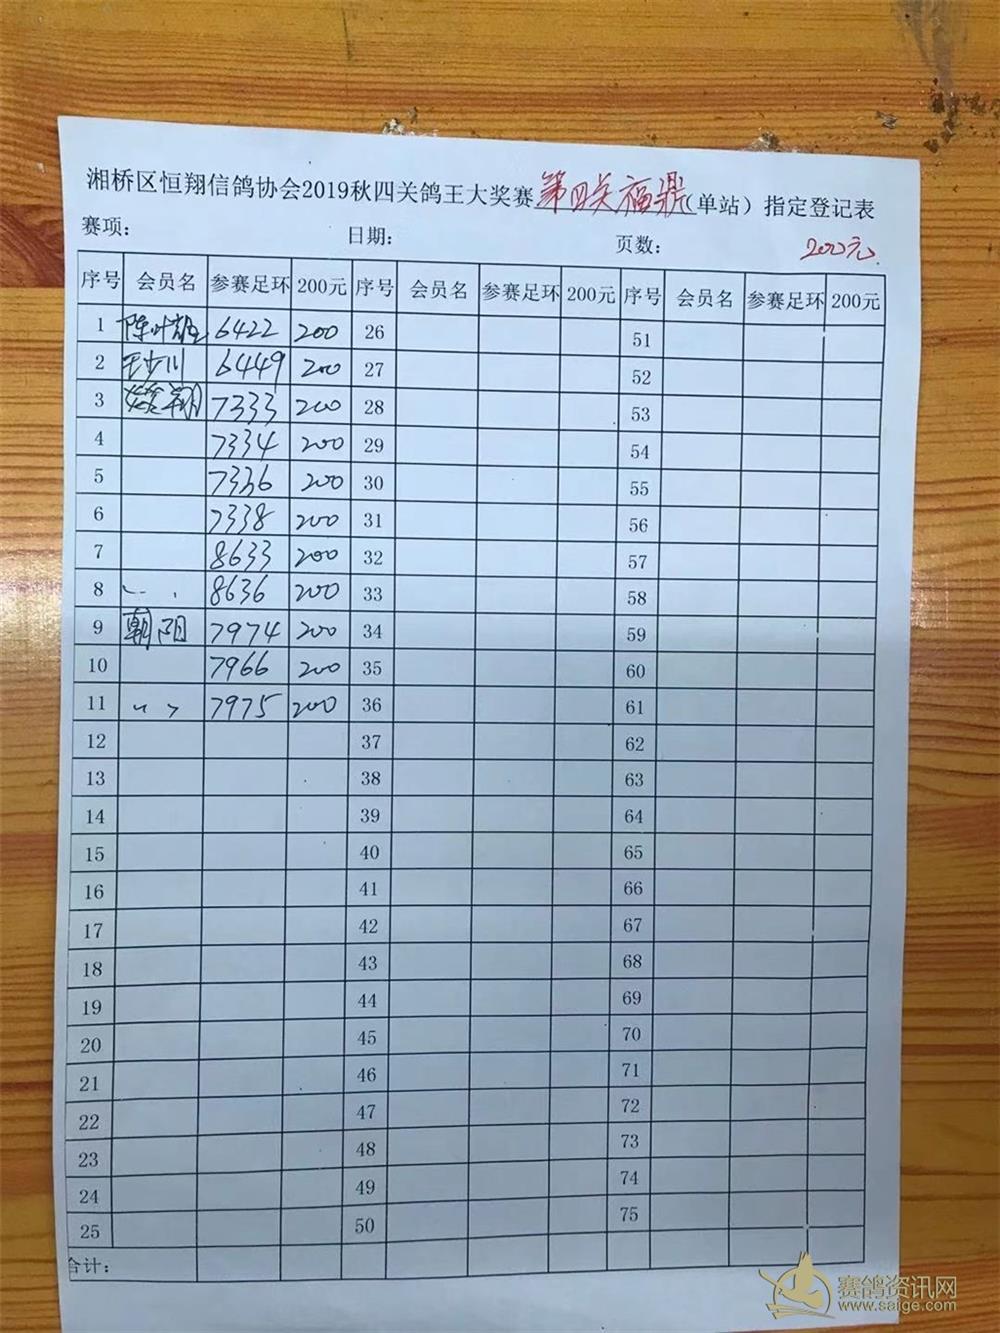 湘桥区恒翔信鸽协会2019秋四关鸽王大奖赛 第四关福鼎（单站）指定登记表
赛项： 日期： 页数： 200元
序号 会员名 参赛足环 200元 序号 会员名 参赛足环 200元 序号 会员名 参赛足环 200元
1 陈叶雄 6422 200 26 51
2 王少川 6449 200 27 52
3 翔 7333 200 28 53
4 7334 200 29 54
5 7336 200 30 55
6 7338 200 31 56
7 8633 200 32 57
8 8636 200 33 58
9 朝阳 7974 200 34 59
10 7966 200 35 60
11 7975 200 36 61
12 37 62
13 38 63
14 39 64
15 40 65
16 41 66
17 42 67
18 43 68
19 44 69
20 45 70
21 46 71
22 47 72
23 48 73
24 49 74
25 50 75
合计：
赛鸽资讯网
www.saige.com